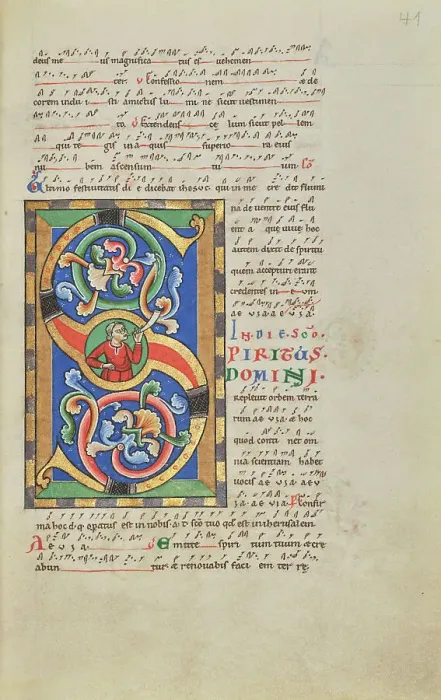 41
deus me us magnifica tus es vehemen
ter. V Confessio nem & de
corem indu i sti amictus lu mi ne sicut vestimen
to. Extendens ce lum sicut pel lem
qui te gis in a quis superio ra eius
nu bem ascensum tu um.
Ultimo festivitatis di e dicebat ihesus. qui in me cre dit flumi
na de ventre eius flu
ent a que vive hoc
autem dixit de spiritu
quem accepturi erant
credentes in e um
ae v ia. ae v ia.
IN DIE SCO
PIRITUS.
DOMINI.
Replevit orbem terra
rum ae v ia. & hoc
quod conti net om
nia scientiam habet
vocis ae v ia. ae v
ia. ae v ia. Confir
ma hoc d's q'd opatus est in nobis. a t' sco tuo qd' est in iherusalem
Ae v ia. Emitte spiri tum tuum & cre
abun tur & renovabis faci em ter re